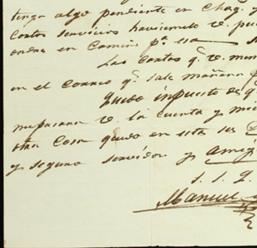 tenga algo pendiente en Chag. y
cortos servicios haciendo V. pue
orden en Camino pª esa
Las cartas q. V. man
en el Correo q. sale mañana p
Quedo impuesto de q
me pasara V. la cuenta y mi
otra cosa quedo en esta su
y seguro servidor y amig
S. S. Q.
Manuel